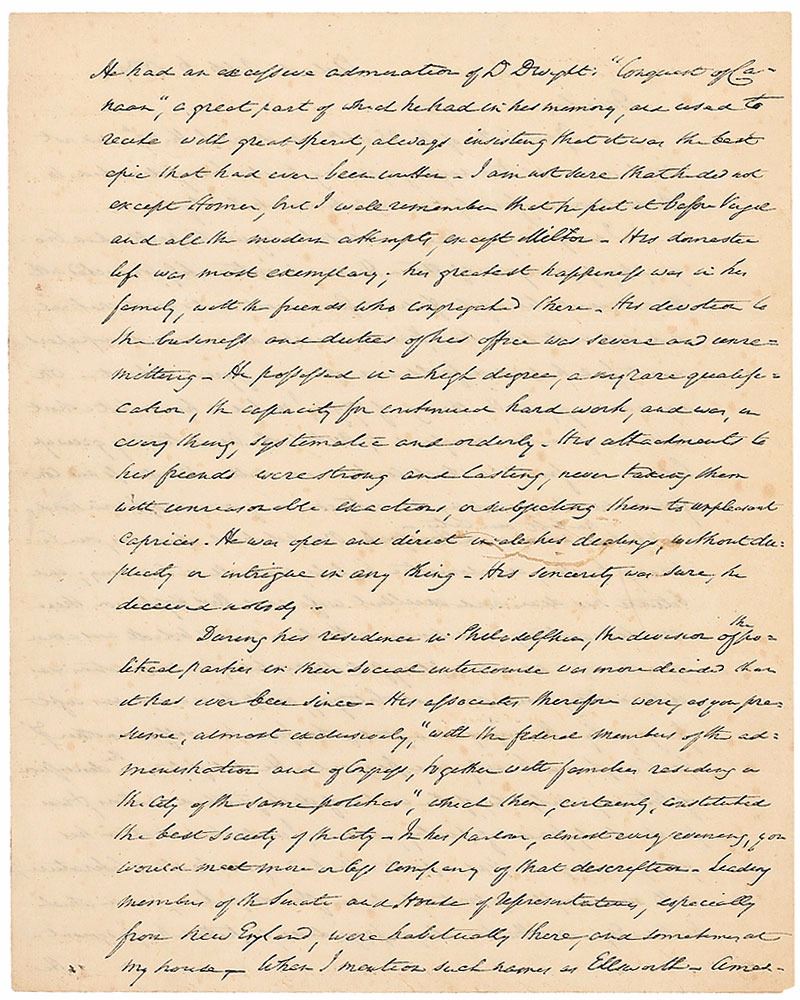 He had an excessive admiration of D Dwight's "Conquest of Ca-
naan", a great part of which he had in his memory, and used to
recite with great spirit, always insisting that it was the best
epic that had ever been written - I am not sure that he did not
except Homer, but I well remember that he put it before Virgil
and all the modern attempts, except Milton - His domestic
life was most exemplary; his greatest happiness was in his
family, with the friends who congregated there - His devotion to
the business and duties of his office was severe and unre=
mitting - He possessed in a high degree, a very rare qualifi=
cation, the capacity for continued hard work, and was, in
every thing, systematic and orderly - His attachments to
his friends were strong and lasting, never taxing them
with unreasonable exactions, or subjecting them to unpleasant
caprices. He was open and direct in all his dealings, without du=
plicity or intrigue in any thing - His sincerity was sure, he
deceived nobody --
During his residence in Philadelphia, the division of the po=
litical parties in their social intercourse was more decided than
it has ever been since - His associates therefore were, as you pre=
sume, almost exclusively, "with the federal members of the ad=
ministration and of Congress, together with families residing in
the City of the same politics", which then, certainly, constituted
the best society of the City - In his parlour, almost every evening, you
would meet more or less company of that description - Leading
members of the Senate and House of Representatives, especially
from New England, were habitually there, and sometimes at
my house - When I mention such names as Ellsworth - Ames -